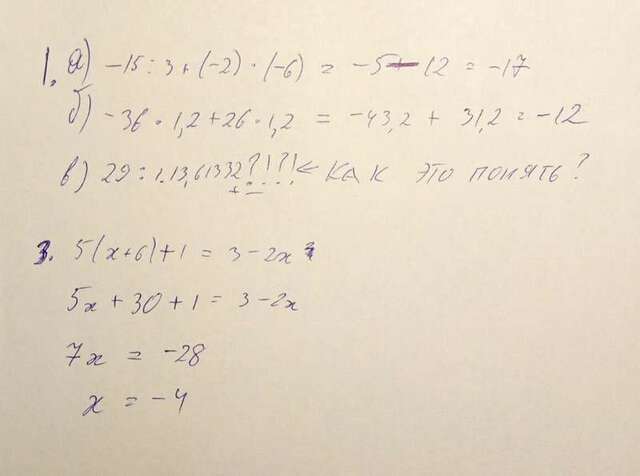 1. а) -15 : 3 + (-2) · (-6) = -5 - 12 = -17
б) -36 · 1,2 + 26 · 1,2 = -43,2 + 31,2 = -12
в) 29 : 1.13,61332?!?! ← КАК ЭТО ПОНЯТЬ?
+ - . . . .
3. 5(x+6)+1 = 3-2x
5x + 30 + 1 = 3 - 2x
7x = -28
x = -4